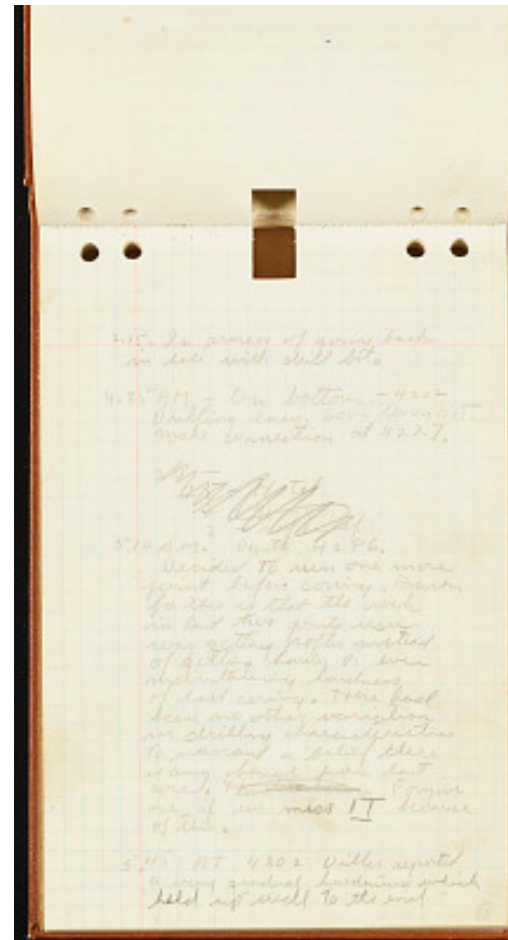 2:15. In process of going back
in hole with drill bit.
4:25 AM – On bottom – 4222
Drilling easy.
make connection at 4227.
5:10 A.M. Depth 4286.
Decided to run one more
joint before coring. Reason
for this is that the rock
in last two joints
was getting softer instead
of getting harder or even
maintaining hardness
of last coring. There had
been no other variation
in drilling characteristics
to warrant a belief there
is any change from last
core. Forgive
me if we miss IT because
of this.
5:45 AT 4302 Driller reported
a very gradual hardening which
held up well to the end